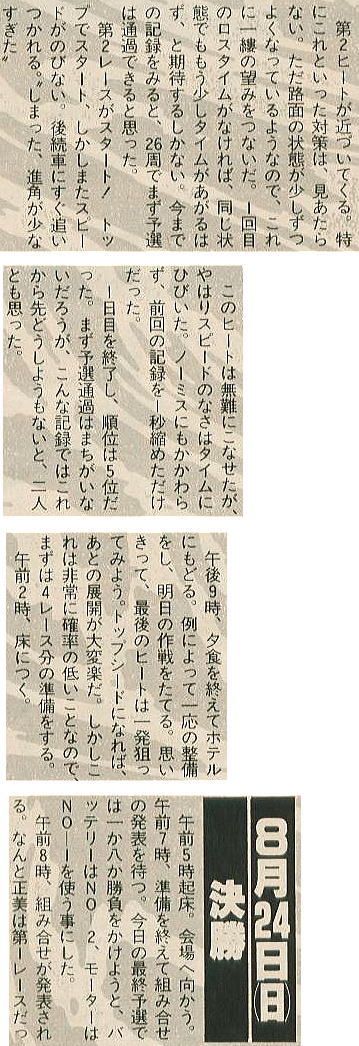 第2ヒートが近づいてくる。特
にこれといった対策は、見あたら
ない。ただ路面の状態が少しずつ
よくなっているようなので、これ
に一縷の望みをつないだ。1回目
のロスタイムがなければ、同じ状
態でももう少しタイムがあがるは
ず、と期待するしかない。今まで
の記録をみると、26周でまず予選
は通過できると思った。
第2レースがスタート！ トッ
プでスタート、しかしまたスピー
ドがのびない。後続車にすぐ追い
つかれる。〝しまった、進角が少な
すぎた〟
このヒートは無難にこなせたが、
やはりスピードのなさはタイムに
ひびいた。ノーミスにもかかわら
ず、前回の記録を1秒縮めただけ
だった。
1日目を終了し、順位は5位だ
った。まず予選通過はまちがいな
いだろうが、こんな記録ではこれ
から先どうしようもないと、二人
とも思った。
午後9時、夕食を終えてホテル
にもどる。例によって一応の整備
をし、明日の作戦をたてる。思い
きって、最後のヒートは一発狙っ
てみよう。トップシードになれば、
あとの展開が大変楽だ。しかしこ
れは非常に確率の低いことなので、
まずは4レース分の準備をする。
午前2時、床につく。
8月24日(日)
決勝
午前5時起床。会場へ向かう。
午前7時、準備を終えて組み合せ
の発表を待つ。今日の最終予選で
は一か八か勝負をかけようと、バ
ッテリーはNO2、モーターは
NO1を使う事にした。
午前8時、組み合せが発表され
る。なんと正美は第1レースだっ